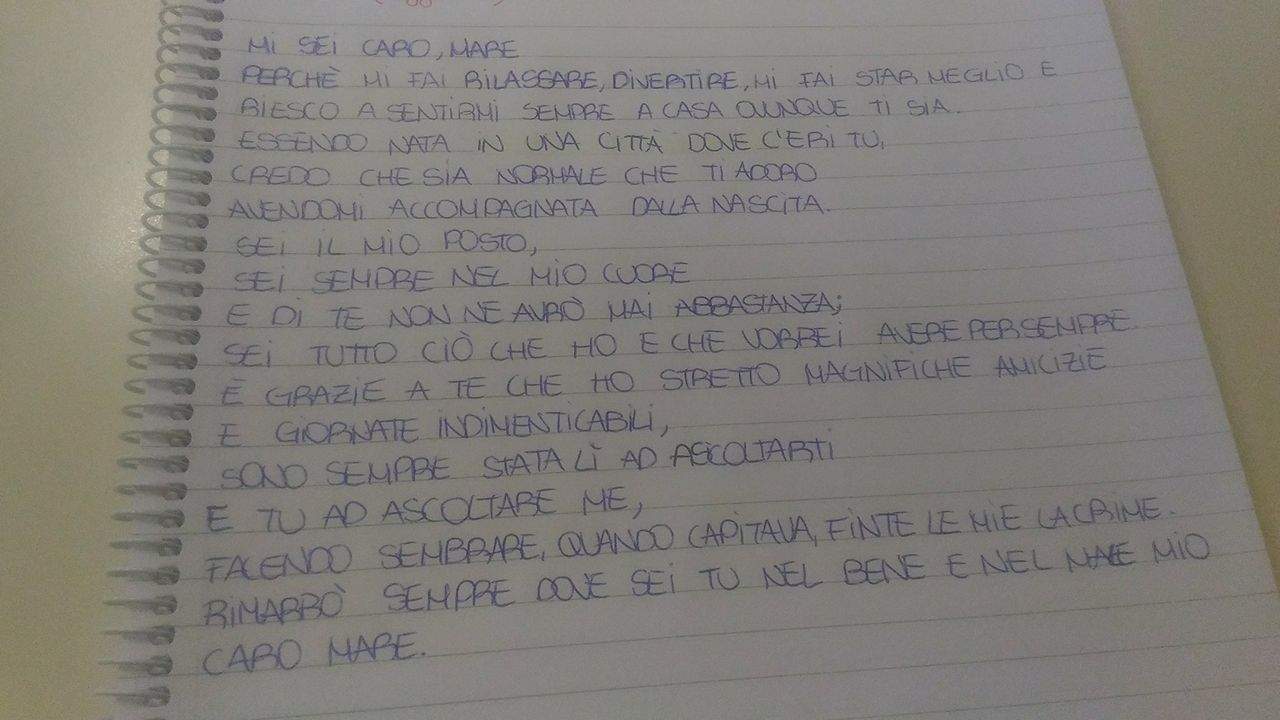 MI SEI CARO, MARE
PERCHÈ MI FAI RILASSARE, DIVERTIRE, MI FAI STAR MEGLIO E
RIESCO A SENTIRMI SEMPRE A CASA OVUNQUE TI SIA.
ESSENDO NATA IN UNA CITTÀ DOVE C'ERI TU,
CREDO CHE SIA NORMALE CHE TI ADORO
AVENDOMI ACCOMPAGNATA DALLA NASCITA.
SEI IL MIO POSTO,
SEI SEMPRE NEL MIO CUORE
E DI TE NON NE AVRÒ MAI ABBASTANZA;
SEI TUTTO CIÒ CHE HO E CHE VORREI AVERE PER SEMPRE.
È GRAZIE A TE CHE HO STRETTO MAGNIFICHE AMICIZIE
E GIORNATE INDIMENTICABILI,
SONO SEMPRE STATA LÌ AD ASCOLTARTI
E TU AD ASCOLTARE ME,
FACENDO SEMBRARE, QUANDO CAPITAVA, FINTE LE MIE LACRIME.
RIMARRÒ SEMPRE DOVE SEI TU NEL BENE E NEL MALE MIO
CARO MARE.